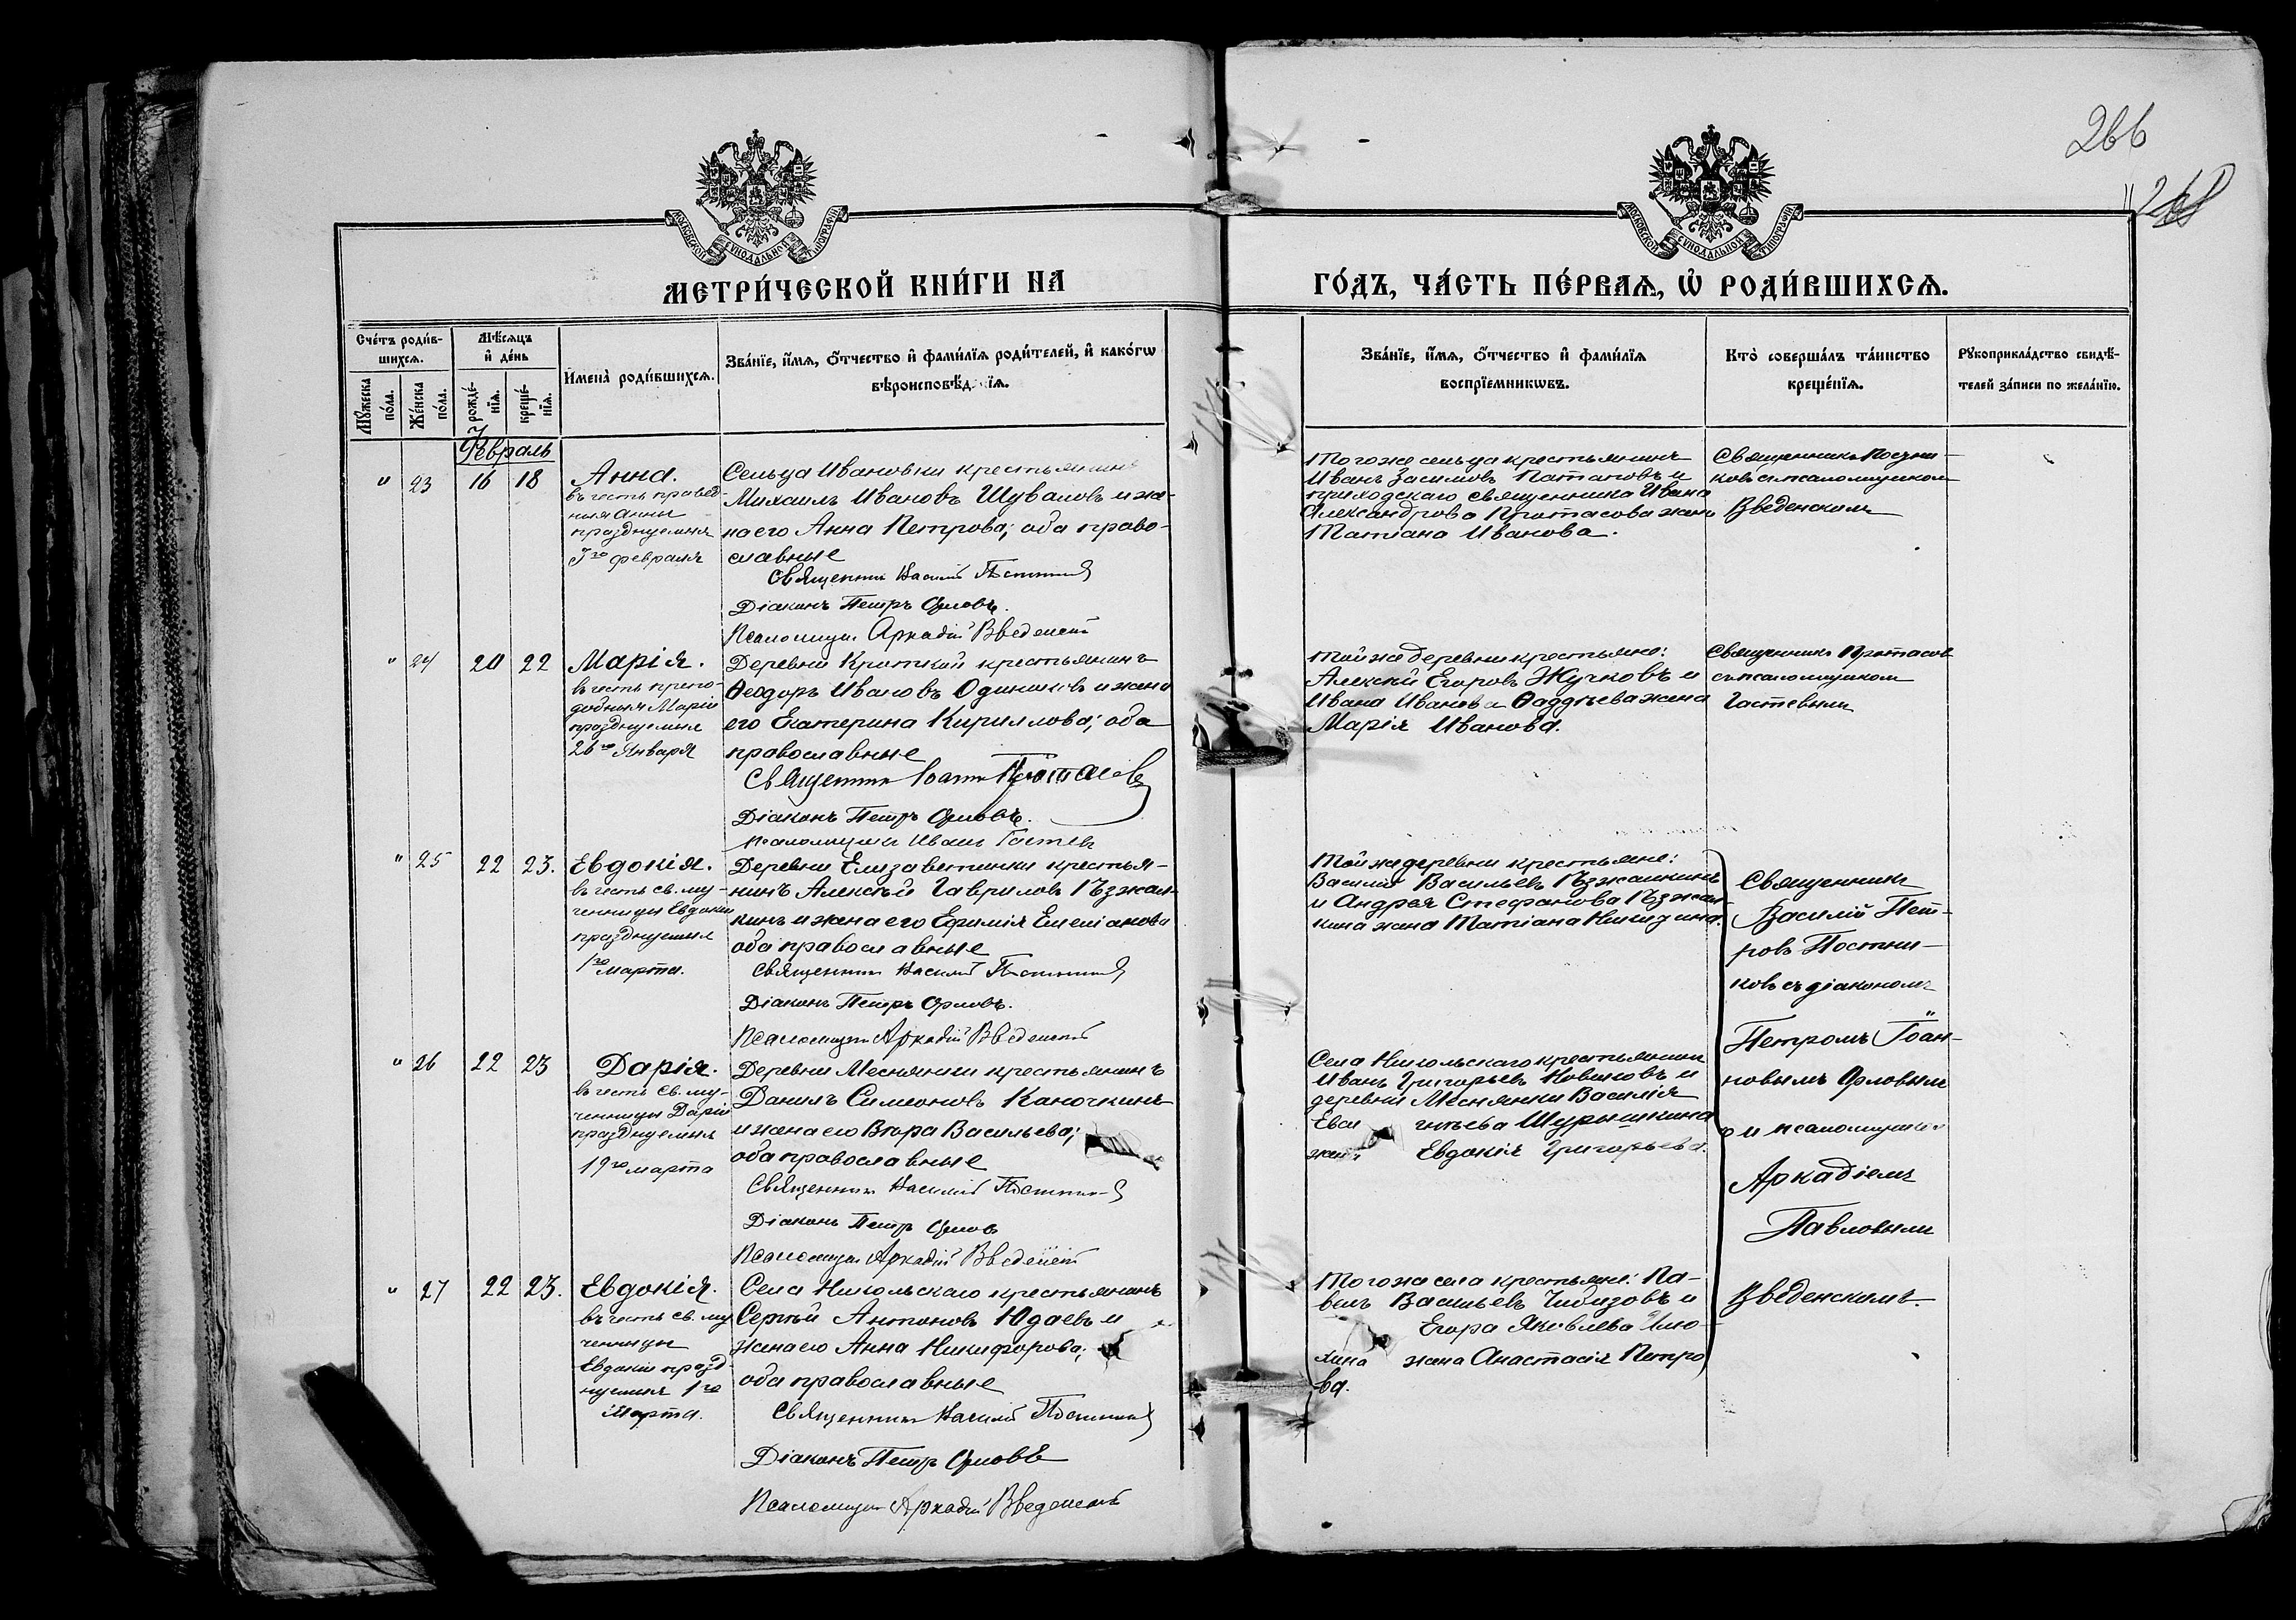 266
268
МОСКОВСКОЙ СѴНОДАЛЬНОЙ ТИПОГРАФІИ
МОСКОВСКОЙ СѴНОДАЛЬНОЙ ТИПОГРАФІИ
МЕТРИ́ЧЕСКОЙ КНИ́ГИ НА
ГО́ДЪ, ЧА́СТЬ ПЕ́РВАѦ, Ѡ҆ РОДИ́ВШИХСѦ.
Сче́тъ роди́в-
шихсѧ.
Мꙋ́жеска по́ла.
Же́нска по́ла.
Мѣ́сѧцъ
и҆ де́нь
рожде́-
нїѧ.
креще́-
нїѧ.
И҆мена̀ роди́вшихсѧ.
Зва́нїе, и҆́мѧ, ѻ҆́тчество и҆ фами́лїѧ роди́телей, и҆ како́гѡ
вѣроисповѣ́д нїѧ.
Зва́нїе, и҆́мѧ, ѻ҆́тчество и҆ фами́лїѧ
воспрїе́мникѡвъ.
Кто̀ соверша́лъ та́инство
креще́нїѧ.
Рꙋкоприкла́дство свидѣ́-
телей за́писи по жела́нїю.
Февраль
" 23 16 18
Анна.
въ честь правед-
ныя Анны
празднуемыя
3го февраля
Сельца Ивановки крестьянинъ
Михаилъ Ивановъ Шуваловъ и же-
на его Анна Петрова; оба право-
славные
Священникъ Василій Постников
Діаконъ Петръ Орловъ.
Псаломщик Аркадій Введенскій
Того же сельца крестьянинъ
Иванъ Зосимовъ Потаповъ и
приходскаго священника Ивана
Александрова Протасова жена
Татіана Иванова.
Священникъ Постни-
ковъ съ псаломщикомъ
Введенскимъ
" 24 20 22
Марія.
въ честь препо-
добныя Маріи
празднуемыя
26го Января
Деревни Кроткой крестьянинъ
Ѳеодоръ Ивановъ Одиноковъ и жена
его Екатерина Кириллова; оба
православные
Священникъ Іоаннъ Протасовъ
Діаконъ Петръ Орловъ.
Псаломщикъ Иванъ Гостевъ
Той же деревни крестьяне:
Алексѣй Егоровъ Жучковъ и
Ивана Иванова Ѳаддѣева жена
Марія Иванова.
Священникъ Протасов
съ псаломщикомъ
Гостевымъ
" 25 22 23.
Евдокія.
въ честь св. му-
ченицы Евдокіи
празднуемыя
1го марта.
Деревни Елизаветинки крестья-
нинъ Алексѣй Гавриловъ Пъзжал-
кинъ и жена его Ефимія Емеліанова
оба православные
Священникъ Василій Постников
Діаконъ Петръ Орловъ.
Псаломщикъ Аркадій Введенскій
Той же деревни крестьяне:
Василій Васильевъ Пъзжалкинъ
и Андрея Стефанова Пъзжал-
кина жена Татіана Никитина.
Священникъ
Василій Пет-
ровъ Постни-
ковъ съ діакономъ
Петромъ Іоан-
новымъ Орловымъ
и псаломщикомъ
Аркадіемъ
Павловымъ
Введенскимъ.
" 26 22 23
Дарія.
въ честь св. му-
ченицы Даріи
празднуемыя
19го марта
Деревни Меснянки крестьянинъ
Данилъ Симеоновъ Каночкинъ
и жена его Вѣра Васильева;
оба православные
Священникъ Василій Постников
Діаконъ Петръ Орловъ
Псаломщикъ Аркадій Введенскій
Села Никольскаго крестьянинъ
Иванъ Григорьевъ Новиковъ и
деревни Меснянки Василія
Евси гнѣева Шурышкина
жена Евдокія Григорьева.
" 27 22 23.
Евдокія.
въ честь св. му
ченицы
Евдокіи празд-
нуемыя 1го
Марта.
Села Никольскаго крестьянинъ
Сергѣй Антоновъ Юдаевъ и
жена его Анна Никифорова;
оба православные
Священникъ Василій Постников
Діаконъ Петръ Орловъ
Псаломщикъ Аркадій Введенскій
Того же села крестьяне: Па-
велъ Васильевъ Чибизовъ и
Егора Яковлева Илю-
хина жена Анастасія Петро
ва.